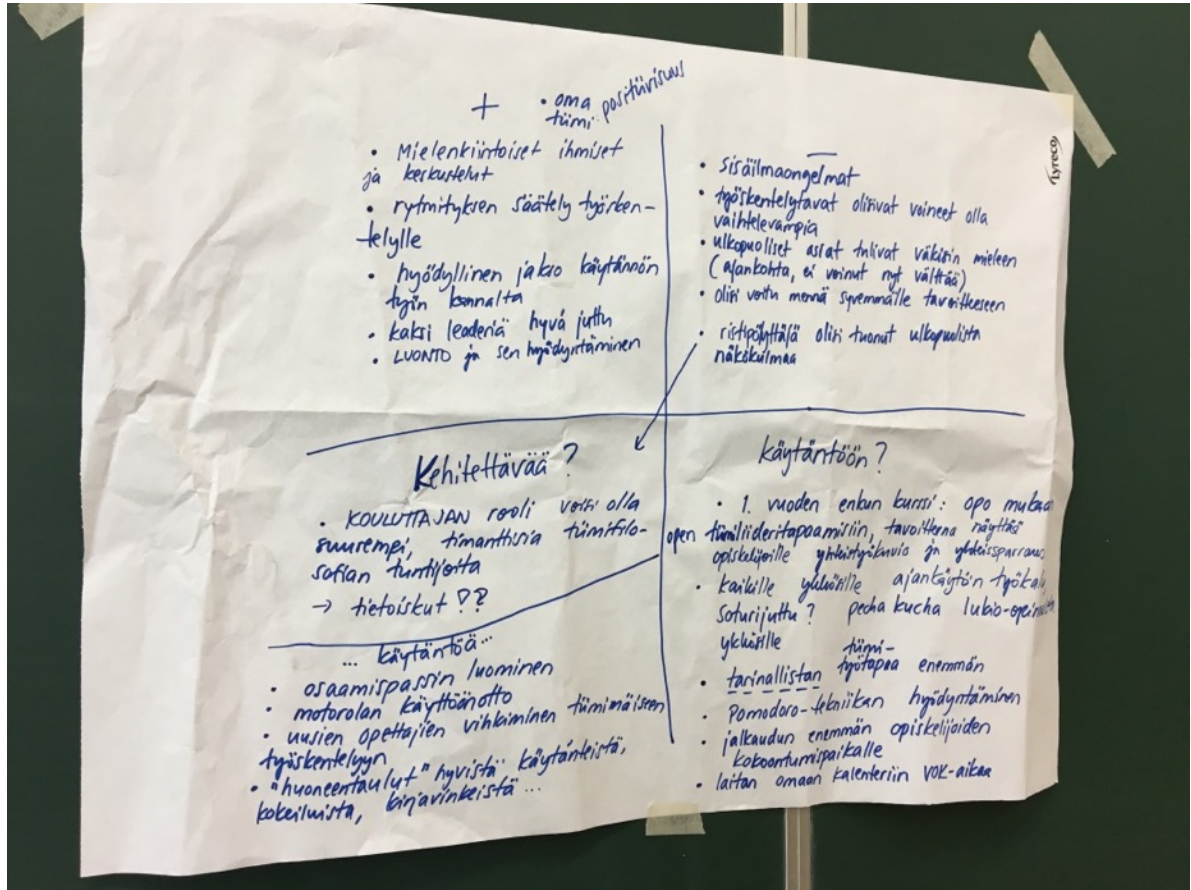 +
• oma
tiimi positiivisuus
• Mielenkiintoiset ihmiset
ja keskustelut
• rytmityksen säätely työsken-
telylle
• hyödyllinen jakso käytännön
työn kannalta
• kaksi leaderiä hyvä juttu
• LUONTO ja sen hyödyntäminen
–
• sisäilmaongelmat
• työskentelytavat olisivat voineet olla
vaihtelevampia
• ulkopuoliset asiat tulivat väkisin mieleen
(ajankohta, ei voinut nyt välttää)
• olisi voitu mennä syvemmälle tavoitteseen
• ristipölyttäjä olisi tuonut ulkopuolista
näkökulmaa
Lyreco
Kehitettävää?
• KOULUTTAJAN rooli voisi olla
suurempi, timanttisia tiimifilo-
sofian tuntijoita
→ tietoiskut ??
... käytäntöä...
• osaamispassin luominen
• motorolan käyttöönotto
• uusien opettajien vihkiminen tiimimäiseen
työskentelyyn
• "huoneentaulut" hyvistä käytänteistä,
kokeiluista, kirjavinkeistä...
käytäntöön?
• 1. vuoden enkun kurssi: opo mukaan
open tiimiliideritapaamisiin, tavoitteena näyttää
opiskelijoille yhteistyökuvio ja yhteissparraus
• kaikille ykkösille ajankäytön työkalu
Soturijuttu? pecha kucha lukio-
ykkösille
• tarinallistan tiimi-
työtapaa enemmän
• Pomodoro-tekniikan hyödyntäminen
• jalkaudun enemmän opiskelijoiden
kokoontumispaikalle
• laitan omaan kalenteriin VOK-aikaa